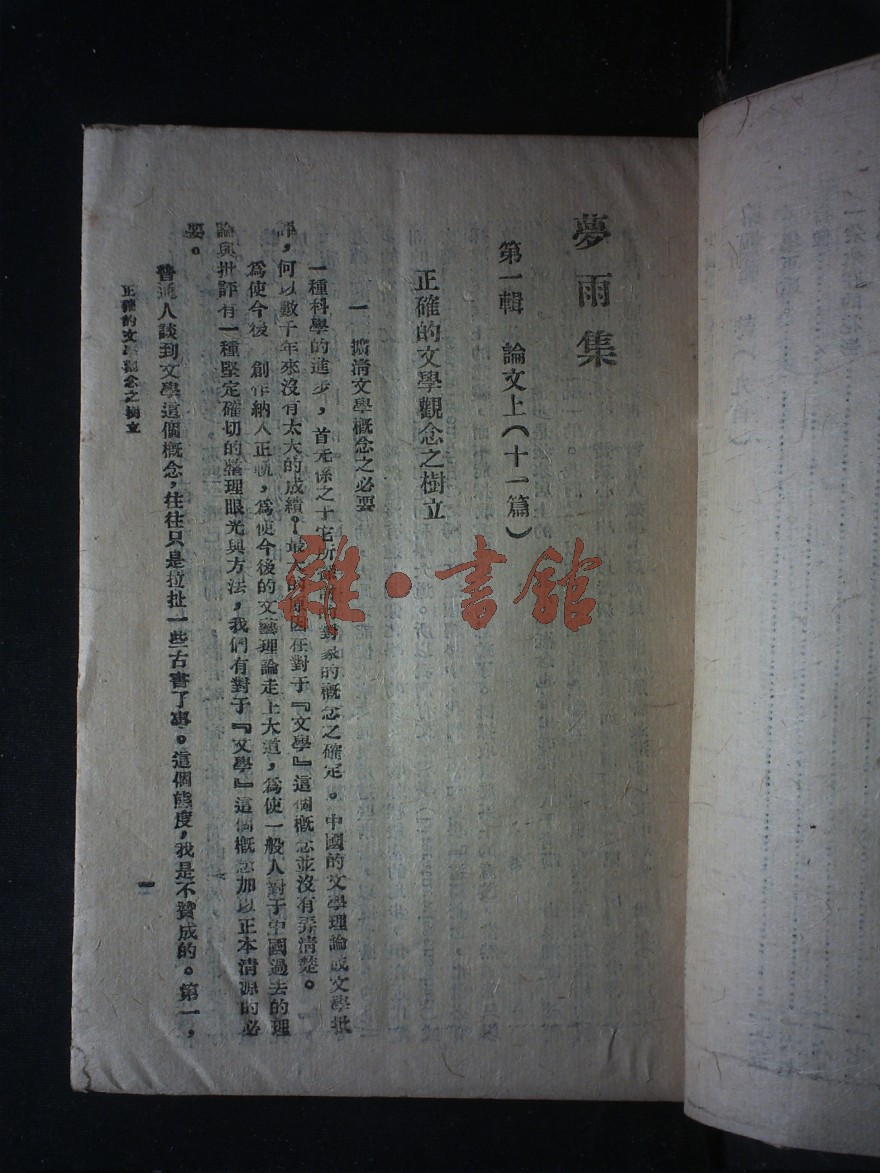 夢雨集
第一輯　論文上（十一篇）
正確的文學觀念之樹立
一　擴清文學概念之必要
一種科學的進步，首先係之于它所研究的對象的概念之確定。中國的文學理論或文學批
評，何以數千年來沒有太大的成績？最大的原因在對于『文學』這個概念並沒有弄清楚。
為使今後　創作納入正軌，為使今後的文藝理論走上大道，為使一般人對于中國過去的理
論與批評有一種堅定確切的整理眼光與方法，我們有對于『文學』這個概念加以正本清源的必
要。
普通人談到文學這個概念，往往只是拉扯一些古書了事。這個態度，我是不贊成的。第一，
正確的文學觀念之樹立
一
雜·書館